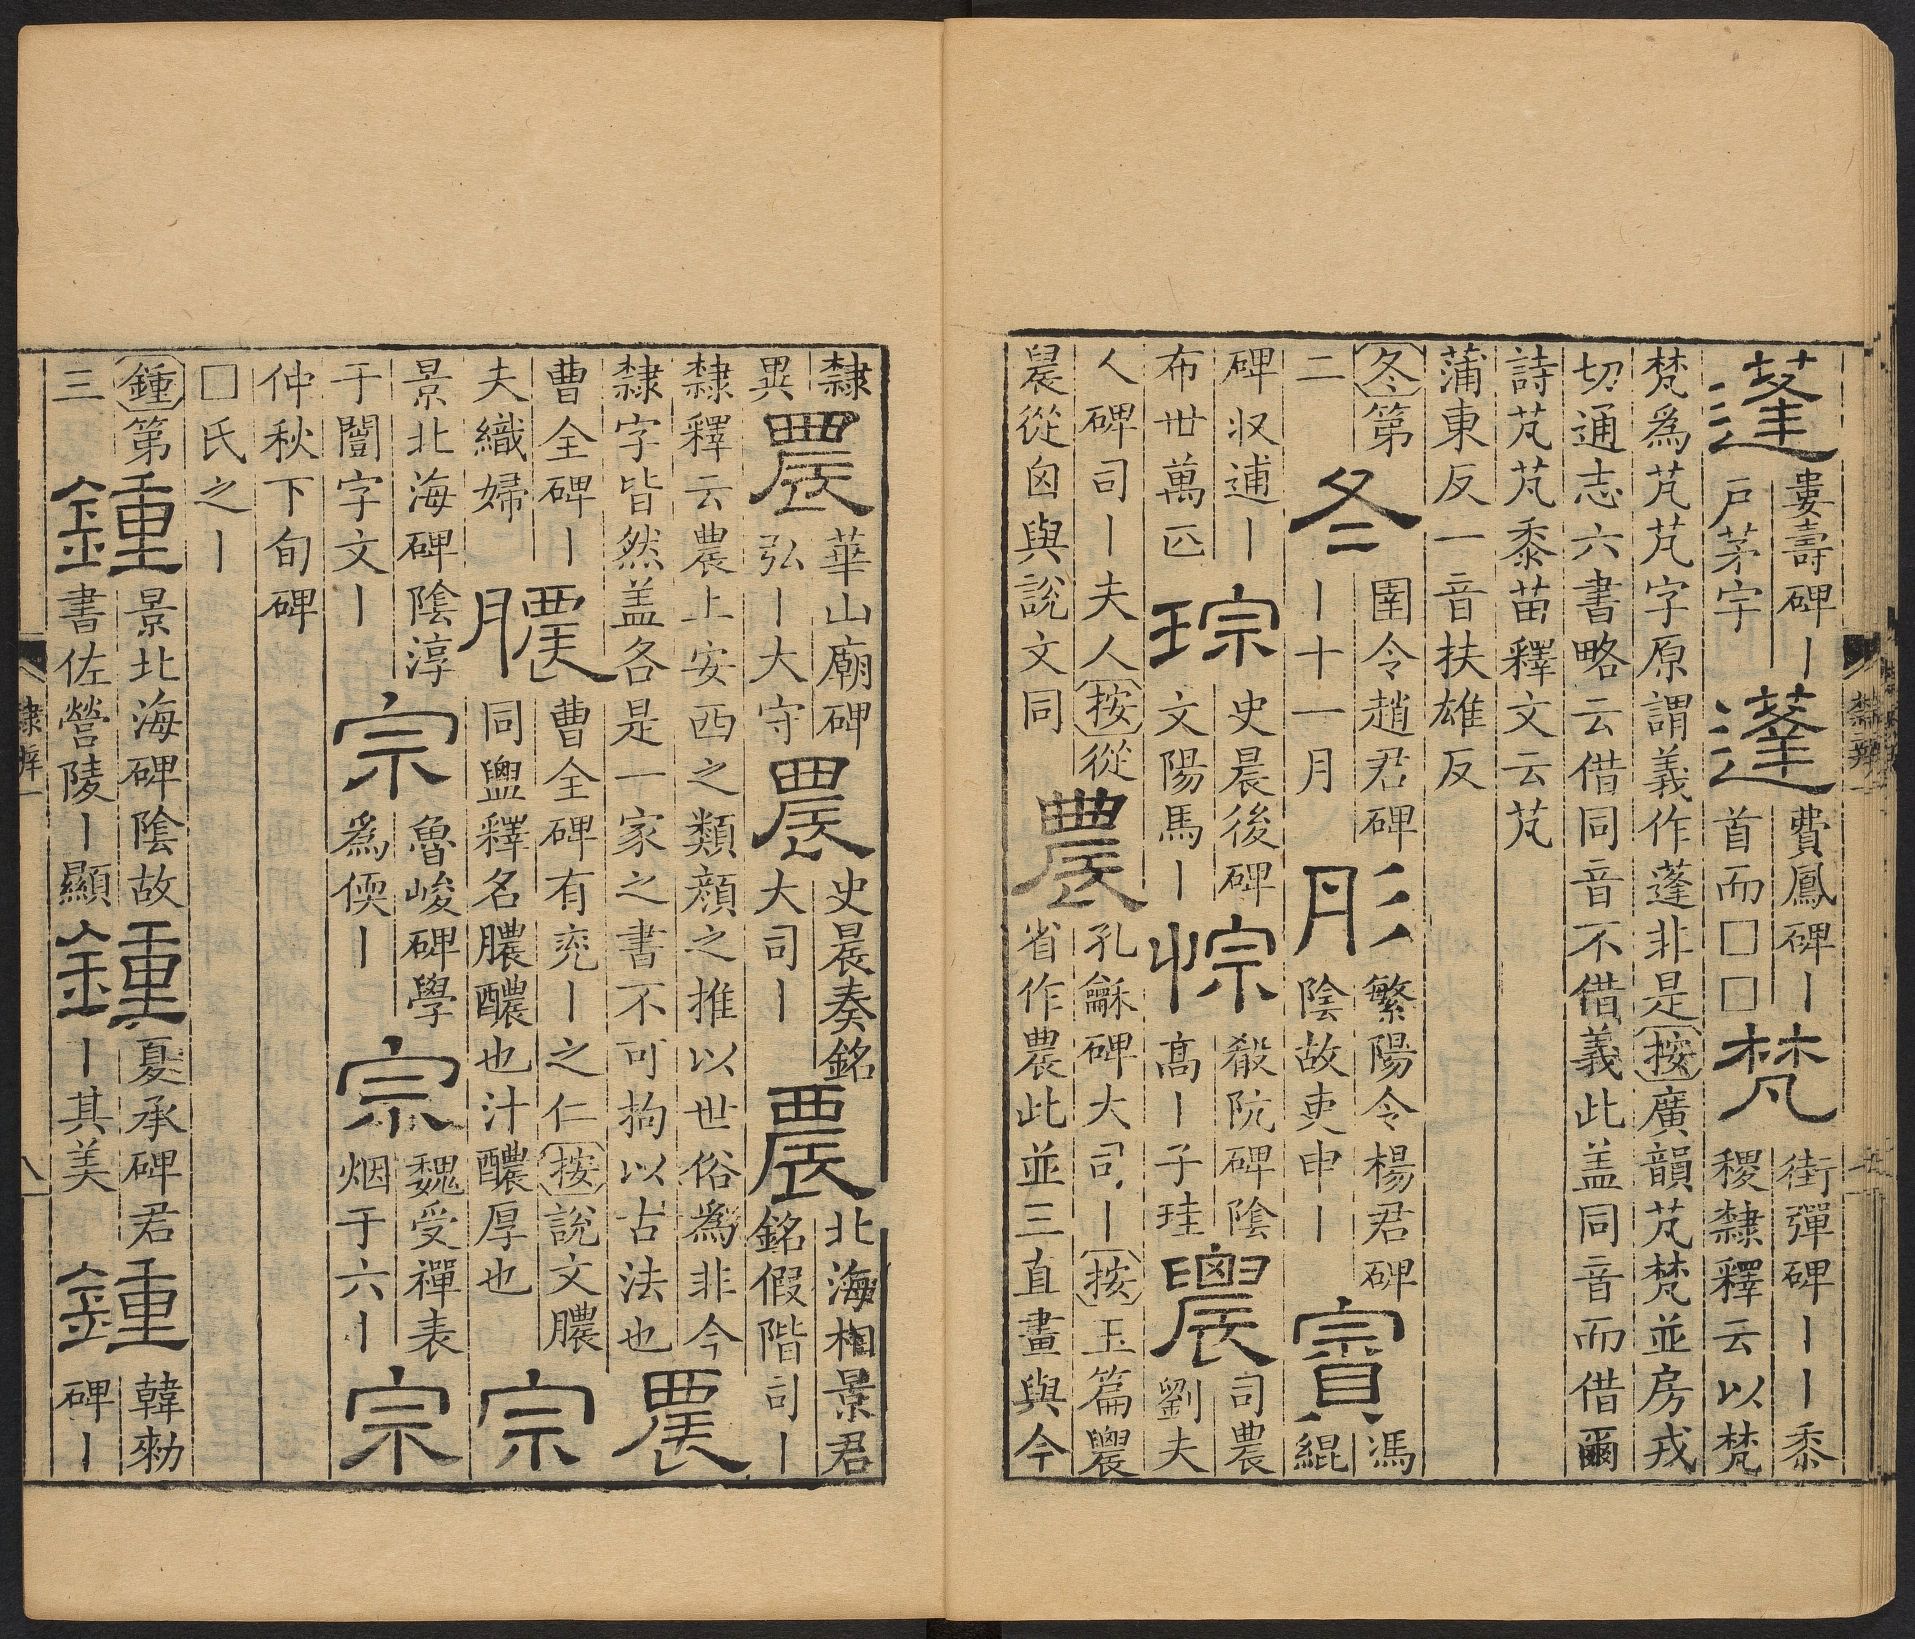 蓬 婁壽碑丨戶茅宇 蓬 費鳳碑丨首而□□ 梵 街彈碑丨丨黍稷隸釋云以梵
梵爲芃芃字原謂義作蓬非是按廣韻芃梵並房戎
切通志六書略云借同音不借義此盖同音而借爾
詩芃芃黍苗釋文云芃
蒲東反一音扶雄反
冬第二 冬 圉令趙君碑丨十一月 彤 繁陽令楊君碑陰故吏申丨 賨 馮緄
碑收逋丨布世萬匹 琮 史晨後碑文陽馬丨 悰 殽阬碑陰髙丨子珪 農 司農劉夫
人碑司丨夫人按從晨從囟與說文同 農 孔龢碑大司丨按玉篇農省作農此並三直畫與今
隸異 農 華山廟碑弘丨大守 農 史晨奏銘大司丨 農 北海相景君銘假階司丨
隸釋云農上安西之類顔之推以世俗爲非今
隸字皆然盖各是一家之書不可拘以古法也 農
曹全碑丨夫織婦 膿 曹全碑有兖丨之仁按說文膿同盥釋名膿醲也汁醲厚也 宗
景北海碑陰淳于誾字文丨 宗 魯峻碑學爲偄丨 宗 魏受禪表烟于六丨 宗
仲秋下旬碑
□氏之丨
鍾第三 鍾 景北海碑陰故書佐營陵丨顯 鍾 夏承碑君丨其美 鍾 韓勑碑丨
隸辨一 八